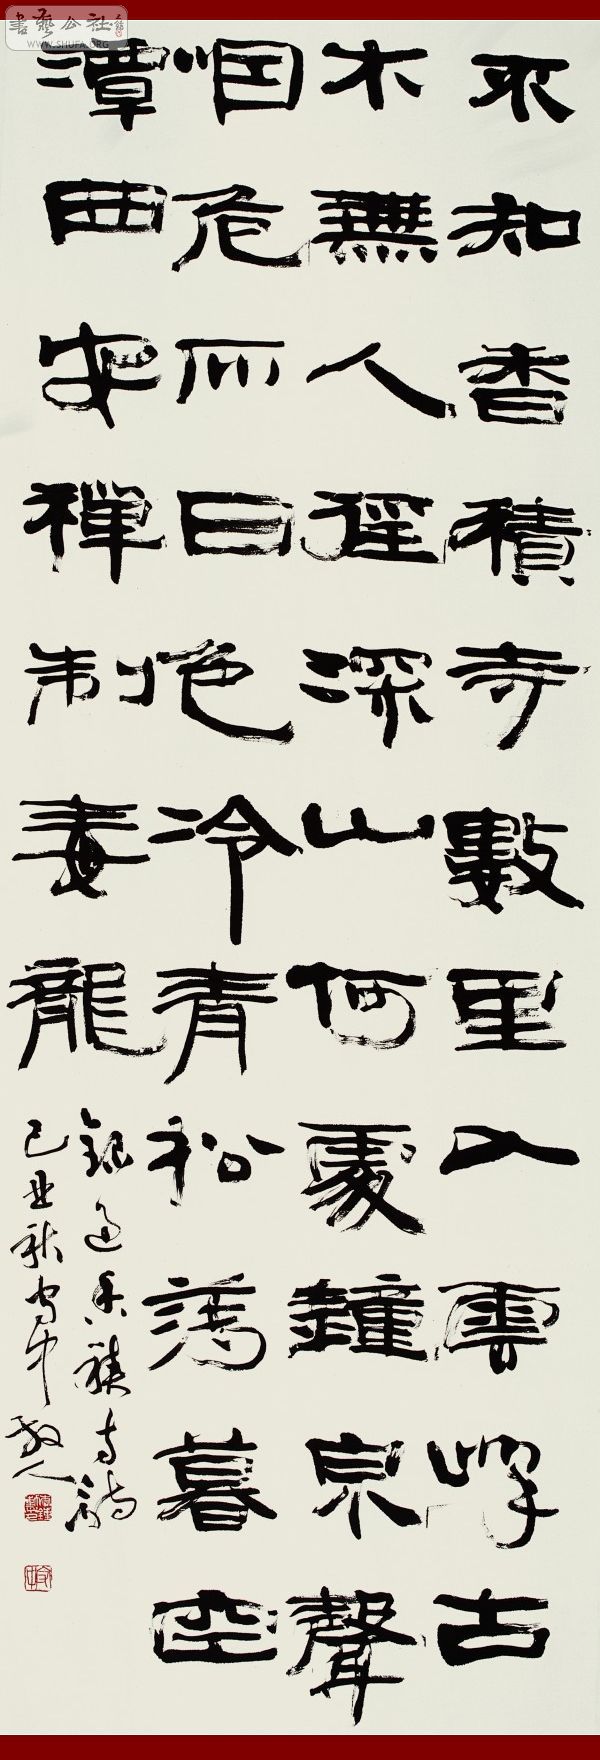 書藝公社
WWW.SHUFA.ORG
不知香積寺數里入雲峰古
木無人徑深山何處鐘泉聲
咽危石日色冷青松薄暮空
潭曲安禪制毒龍
錄過香積寺詩
己丑秋